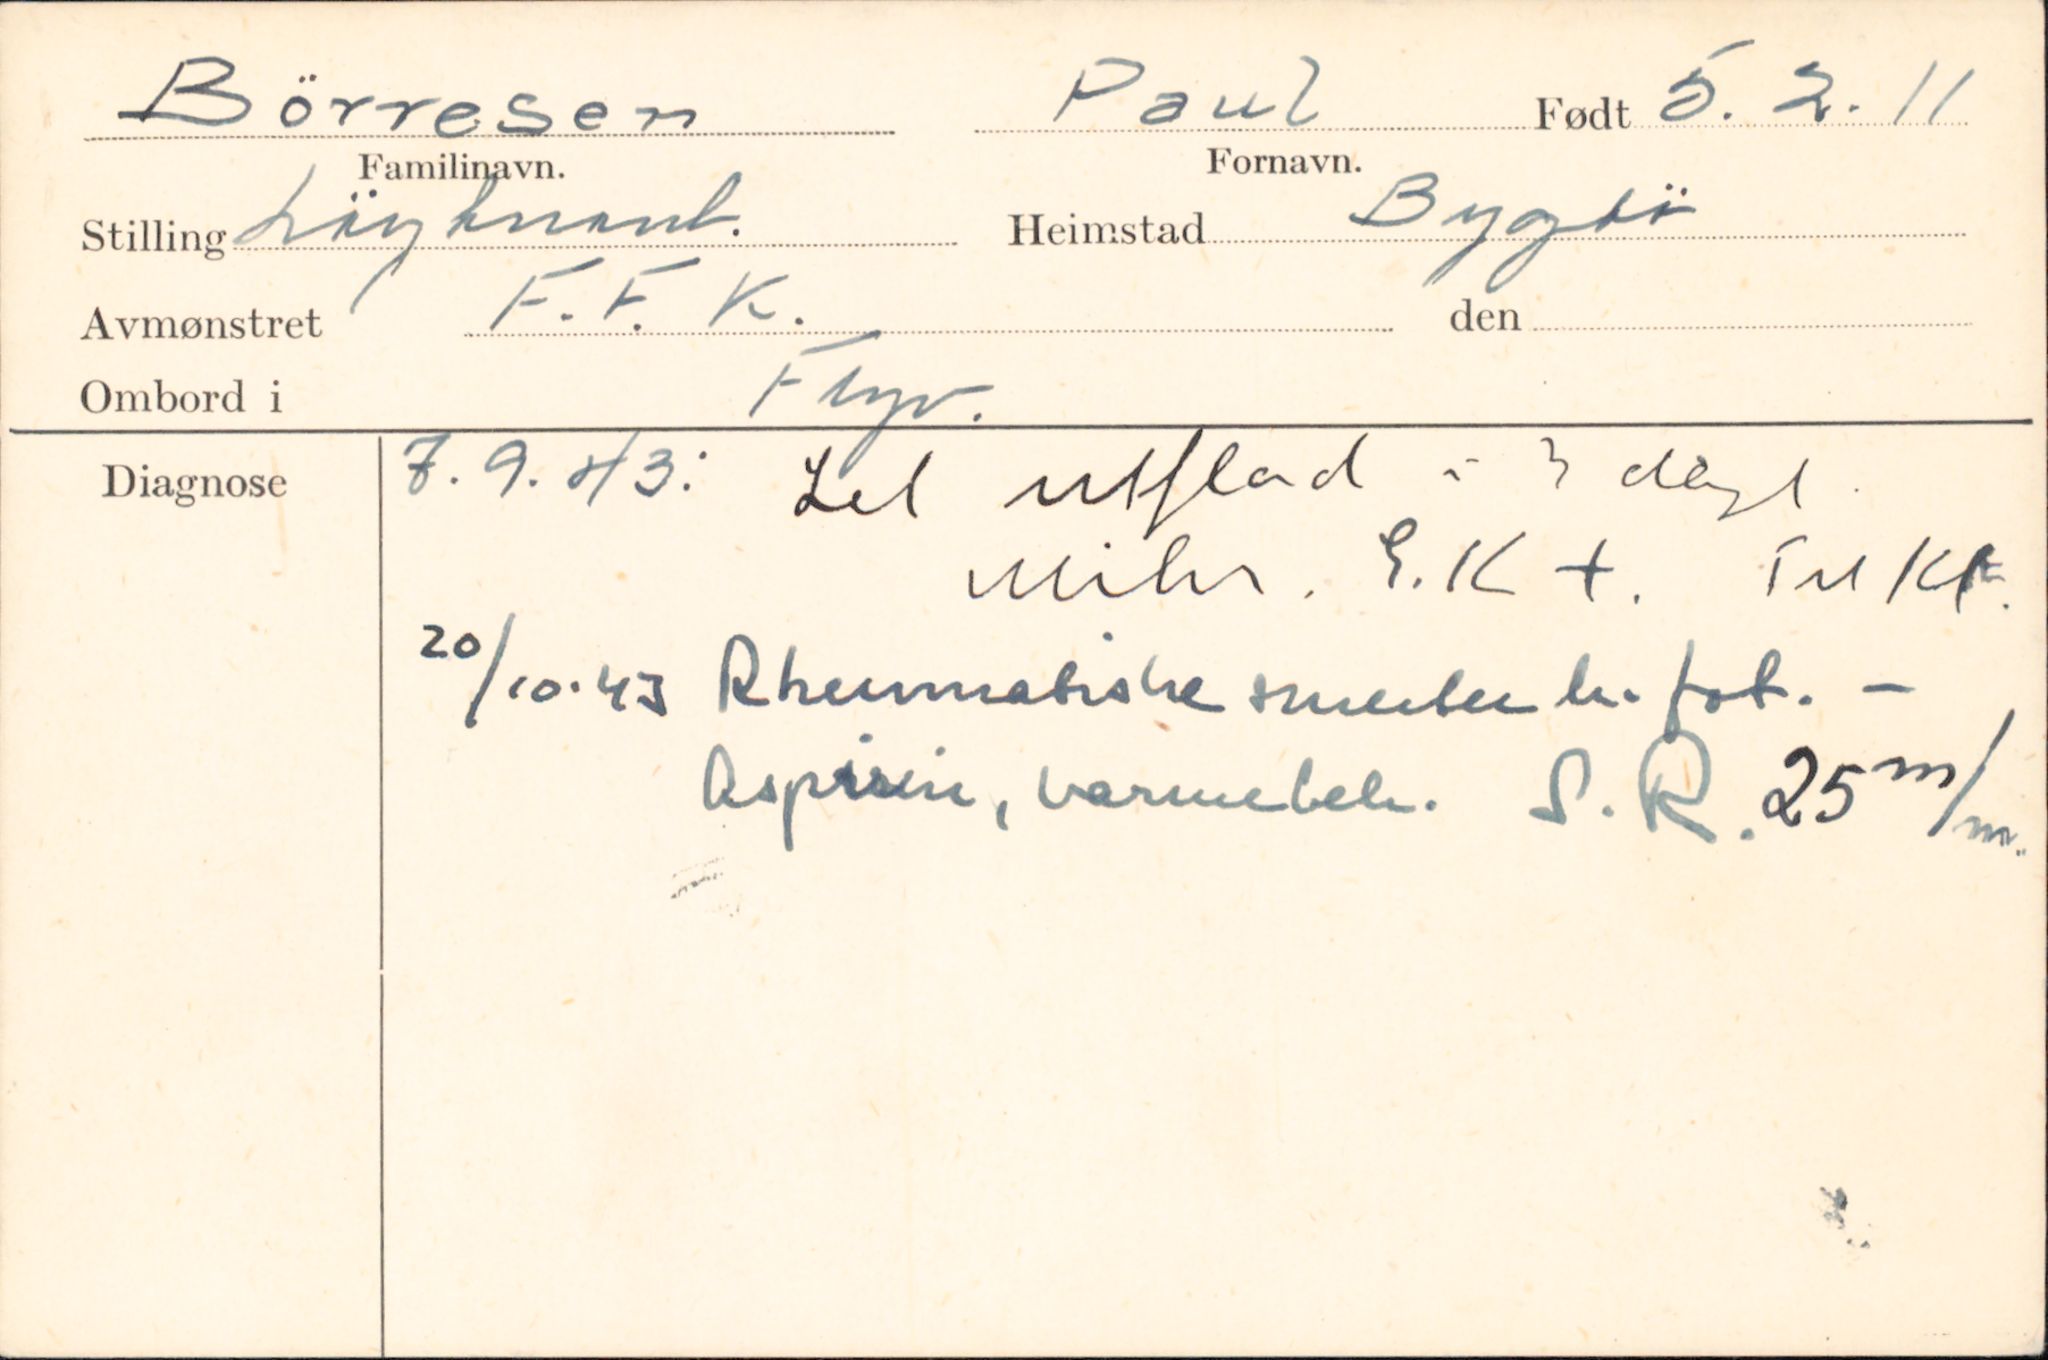 Börresen Paul Født 5. 2. 11
Familinavn. Fornavn.
Stilling Löytnant. Heimstad Bygdö
Avmønstret F. F. K. den
Ombord i Flyv.
Diagnose 7. 9. 43: Let utflod i 3 dage.
Mikr. G.K +. Til
20/10.43 Rheumatiske smerter h. fot. –
Aspirin, varmebeh. S. R. 25 m/m.